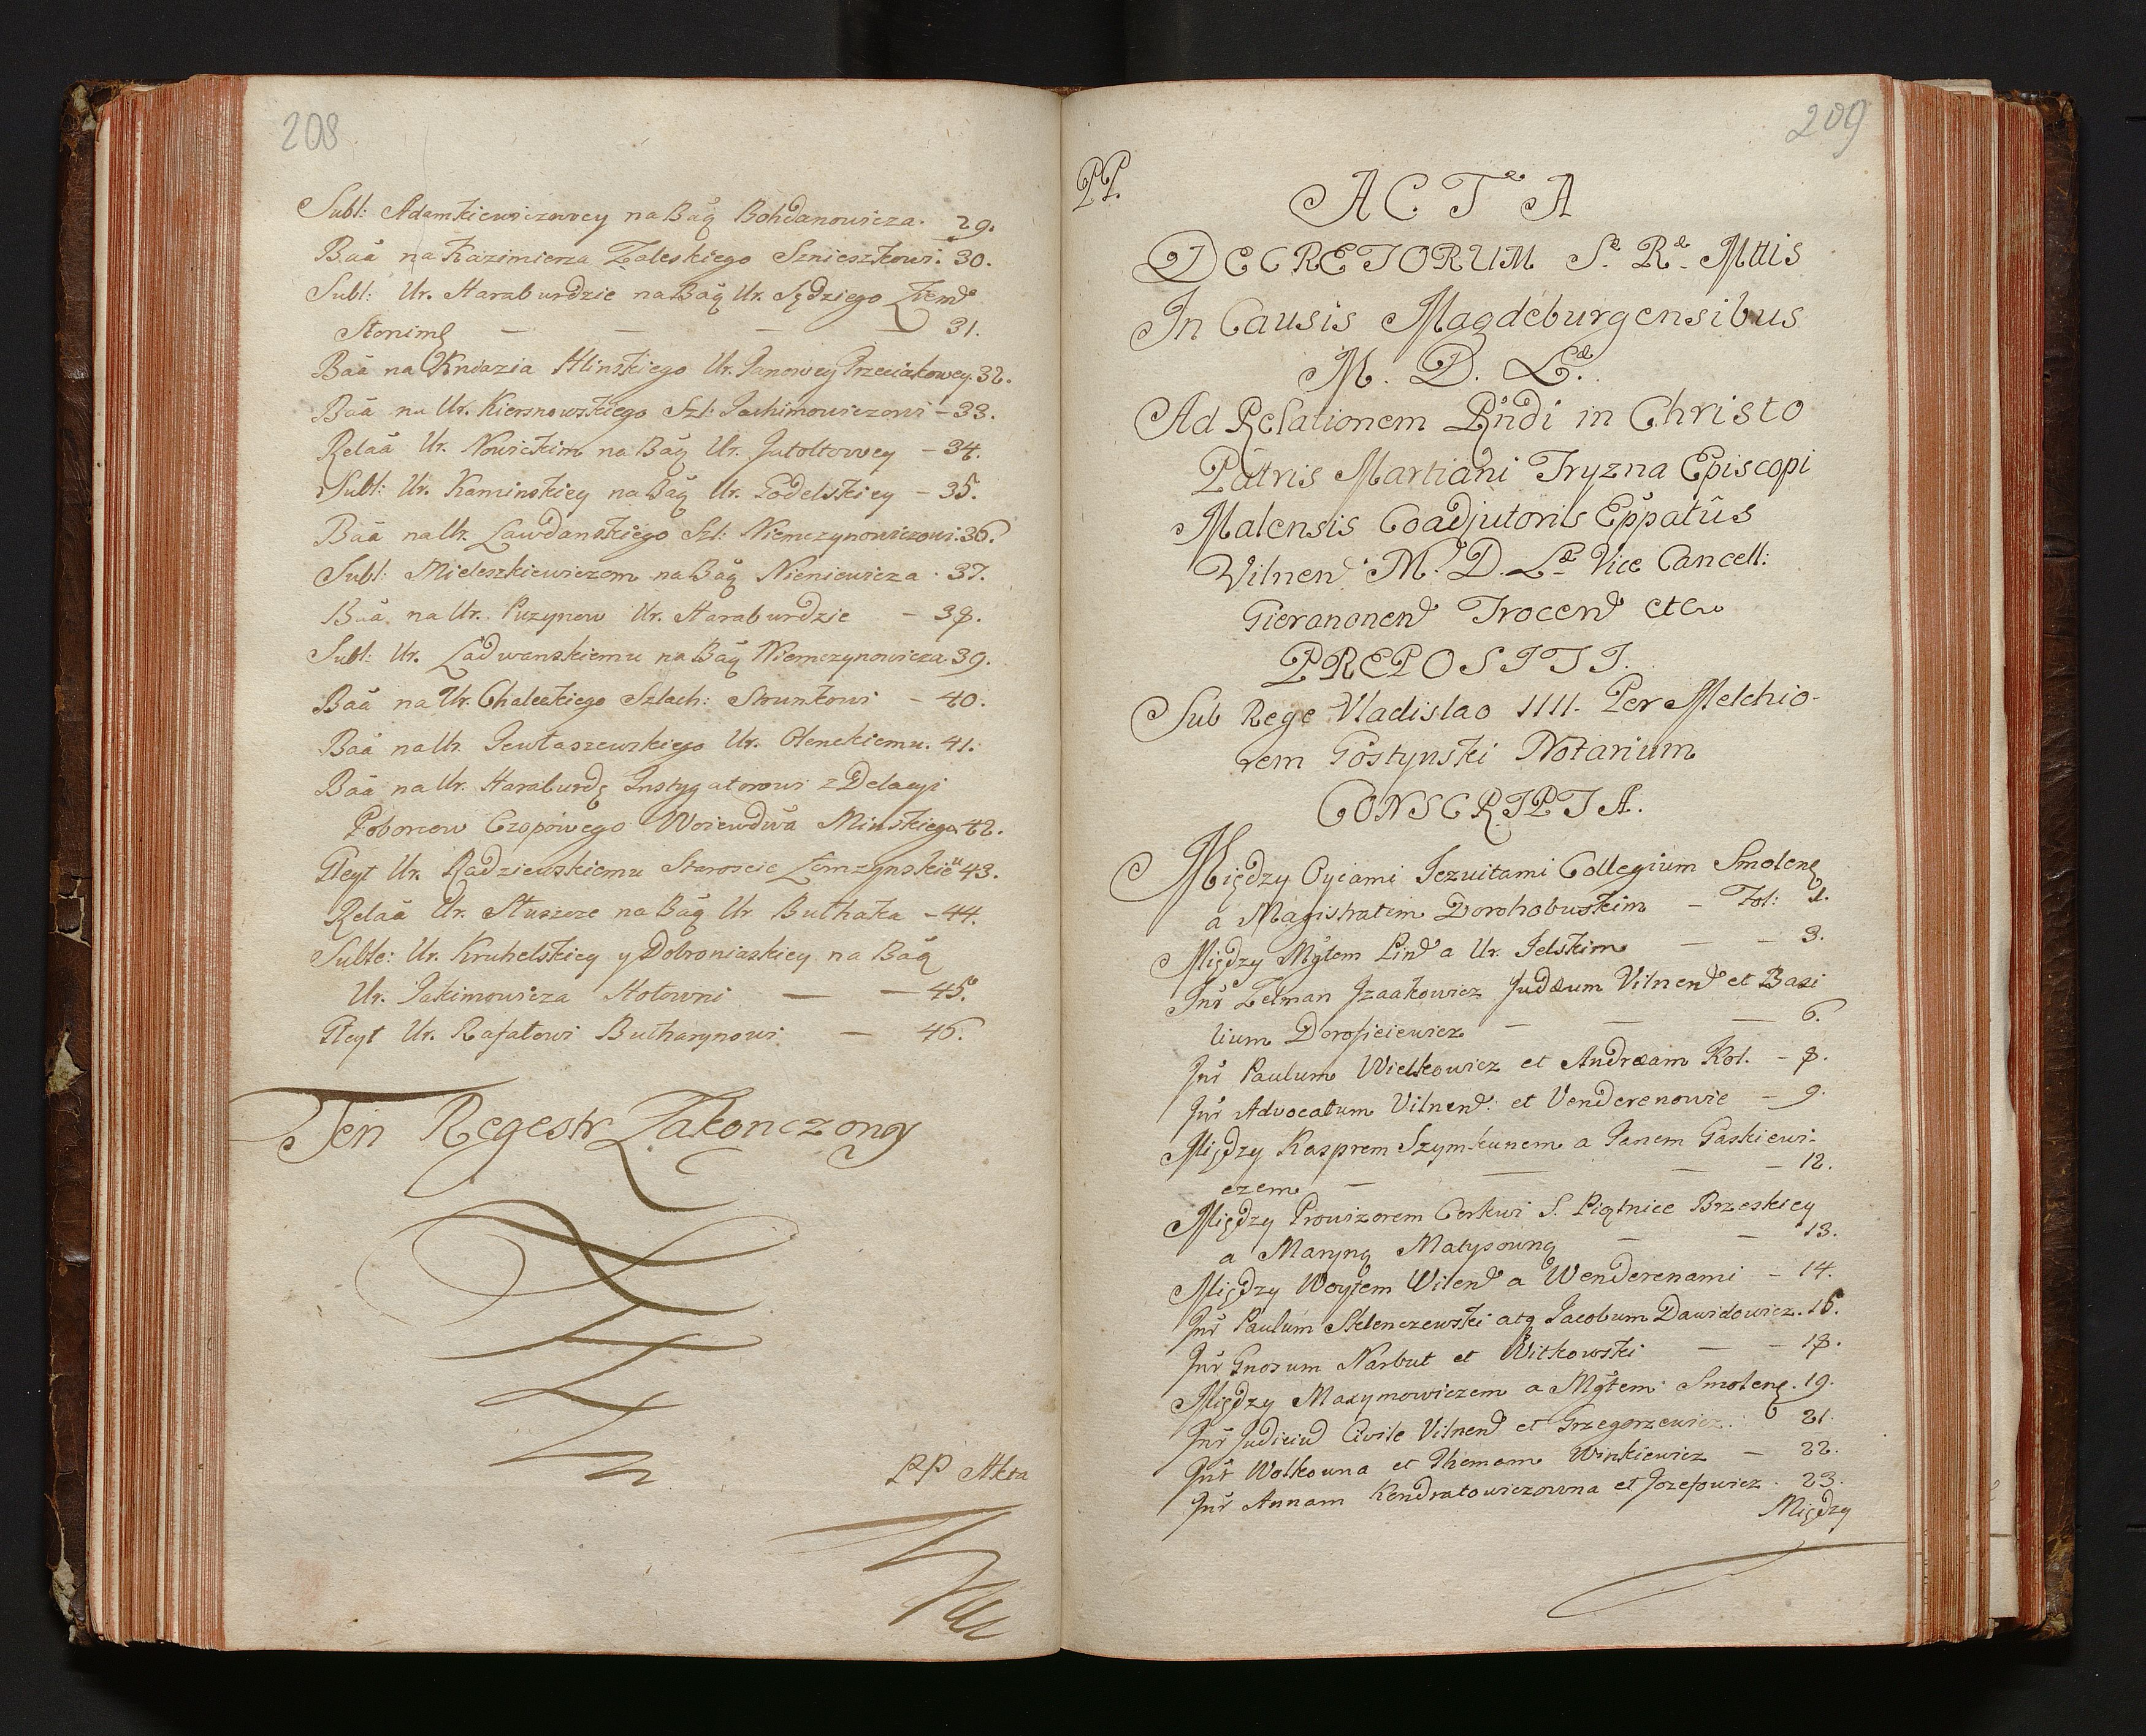 208
Subl: Adamkiewiczowey na Bãą Bohdanowicza. 29.
Bãa na Kazimierza Zaleskiego Sznieszkowi. 30.
Subl: Ur. Haraburdzie na Bãą Ur. Sędziego Ziemd
Słonimę — — — — 31.
Bãa na Kniazia Hlinskiego Ur. Panowey Przeciszkowey. 32.
Bãa na Ur. Kiersnowskiego Szl: Jachimowiczowi – 33.
Relãa Ur. Nowickim na Bãą Ur. Jutoltowey – 34.
Subl: Ur. Kaminskiey na Bãą Ur. Godelskiey – 35.
Bãa na Ur. Lawdanskiego Szl: Niemczynowiczowi. 36.
Subl: Mieleszkiewiczom na Bãą Nieniewicza . 37.
Bãa na Ur. Puzynow Ur. Haraburdzie – 38.
Subl: Ur. Ladwanskiemu na Bãą Niemczynowicza 39.
Bãa na Ur. Chaleckiego Szlach: Strunkowi – 40.
Bãa na Ur. Jewłaszewskiego Ur. Olenckiemu. 41.
Bãa na Ur. Haraburdę Instygatorowi z Delacyi
Poborcow Czopowego Woiewdwa Minskiego 42.
Gleyt Ur. Radzieuskiemu Staroscie Łomzynskieu 43.
Relãa Ur. Słuszcze na Bãą Ur. Bułhaka – 44.
Suble: Ur. Kruhelskiey y Dobroniaskiey na Bãą
Ur. Jakimowicza Hołowni — — 45.
Gleyt Ur. Rafałowi Bułharynowi — 46.
Ten Regestr Zakonczony
PP Akta
209
PP.
ACTA
DECRETORUM S. R. Mttis
In Causis Magdeburgensibus
M. D. L.
Ad Relationem Rñdi in Christo
Patris Martiani Tryzna Episcopi
Malensis Coadjutoris Eppatûs
Vilnend M. D. L. Vice Cancell:
Gieranonend Trocend etc
PREPOSITI.
Sub Rege Vladislao IIII. Per Melchio-
rem Gostynski Notarium
CONSCRIPTA.
Między Oyćami Jezuitami Collegium Smolenę
a Magistratem Dorohobuskim – Fol: 1.
Między Mg̃łem Pind a Ur. Jelskim — – 3.
Int̃ Zelman Jzaakowicz Judæum Vilnend et Bazi
lium Dorofieiewicz — — — 6.
Int̃ Paulum Wielkowicz et Andræam Kot. – 8.
Int̃ Advocatum Vilnend: et Venderenowie – 9.
Między Kasprem Szymkunem a Janem Gaskiewi-
czem — — — – 12.
Między Prowizorem Cerkwi S. Piątnice Brzeskiey
a Maryną Matysowną — – 13.
Między Woytem Wilend a Wenderenami – 14.
Int̃ Paulum Sklenczewski atq Jacobum Dawidowicz. 16.
Int̃ Gnosum Narbut et Witkowski — – 18.
Między Maxymowiczem a Mg̃łem Smolenę. 19.
Int̃ Judiciud Civile Vilnend et Grzegorzewicz. 21.
Int̃ Wolkowna et Thomam Winkiewicz – 22.
Int̃ Annam Kendratowiczowna et Jozefowicz . 23.
Między